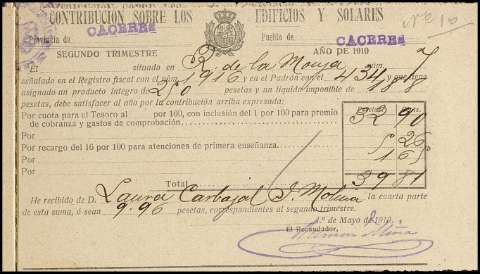 CONTRIBUCIÓN SOBRE LOS EDIFICIOS Y SOLARES
Provincia de CACERES Pueblo de CACERES
SEGUNDO TRIMESTRE AÑO DE 1910
El situado en R. de la Monja 7
señalado en el Registro fiscal con el núm. 1916 y en el Padrón con el 434 y que tiene
asignado un producto íntegro de 250 pesetas y un líquido imponible de
pesetas, debe satisfacer al año por la contribución arriba expresada:
Por cuota para el Tesoro al por 100, con inclusión del 1 por 100 para premio
de cobranza y gastos de comprobación 32 90
Por
Por recargo del 16 por 100 para atenciones de primera enseñanza 5 26
Por 1 65
Por
Total 39 81
He recibido de D. Laura Carbajal la cuarta parte
de esta suma, ó sean 9.96 pesetas, correspondientes al segundo trimestre.
1.º de Mayo de 1910
El Recaudador,